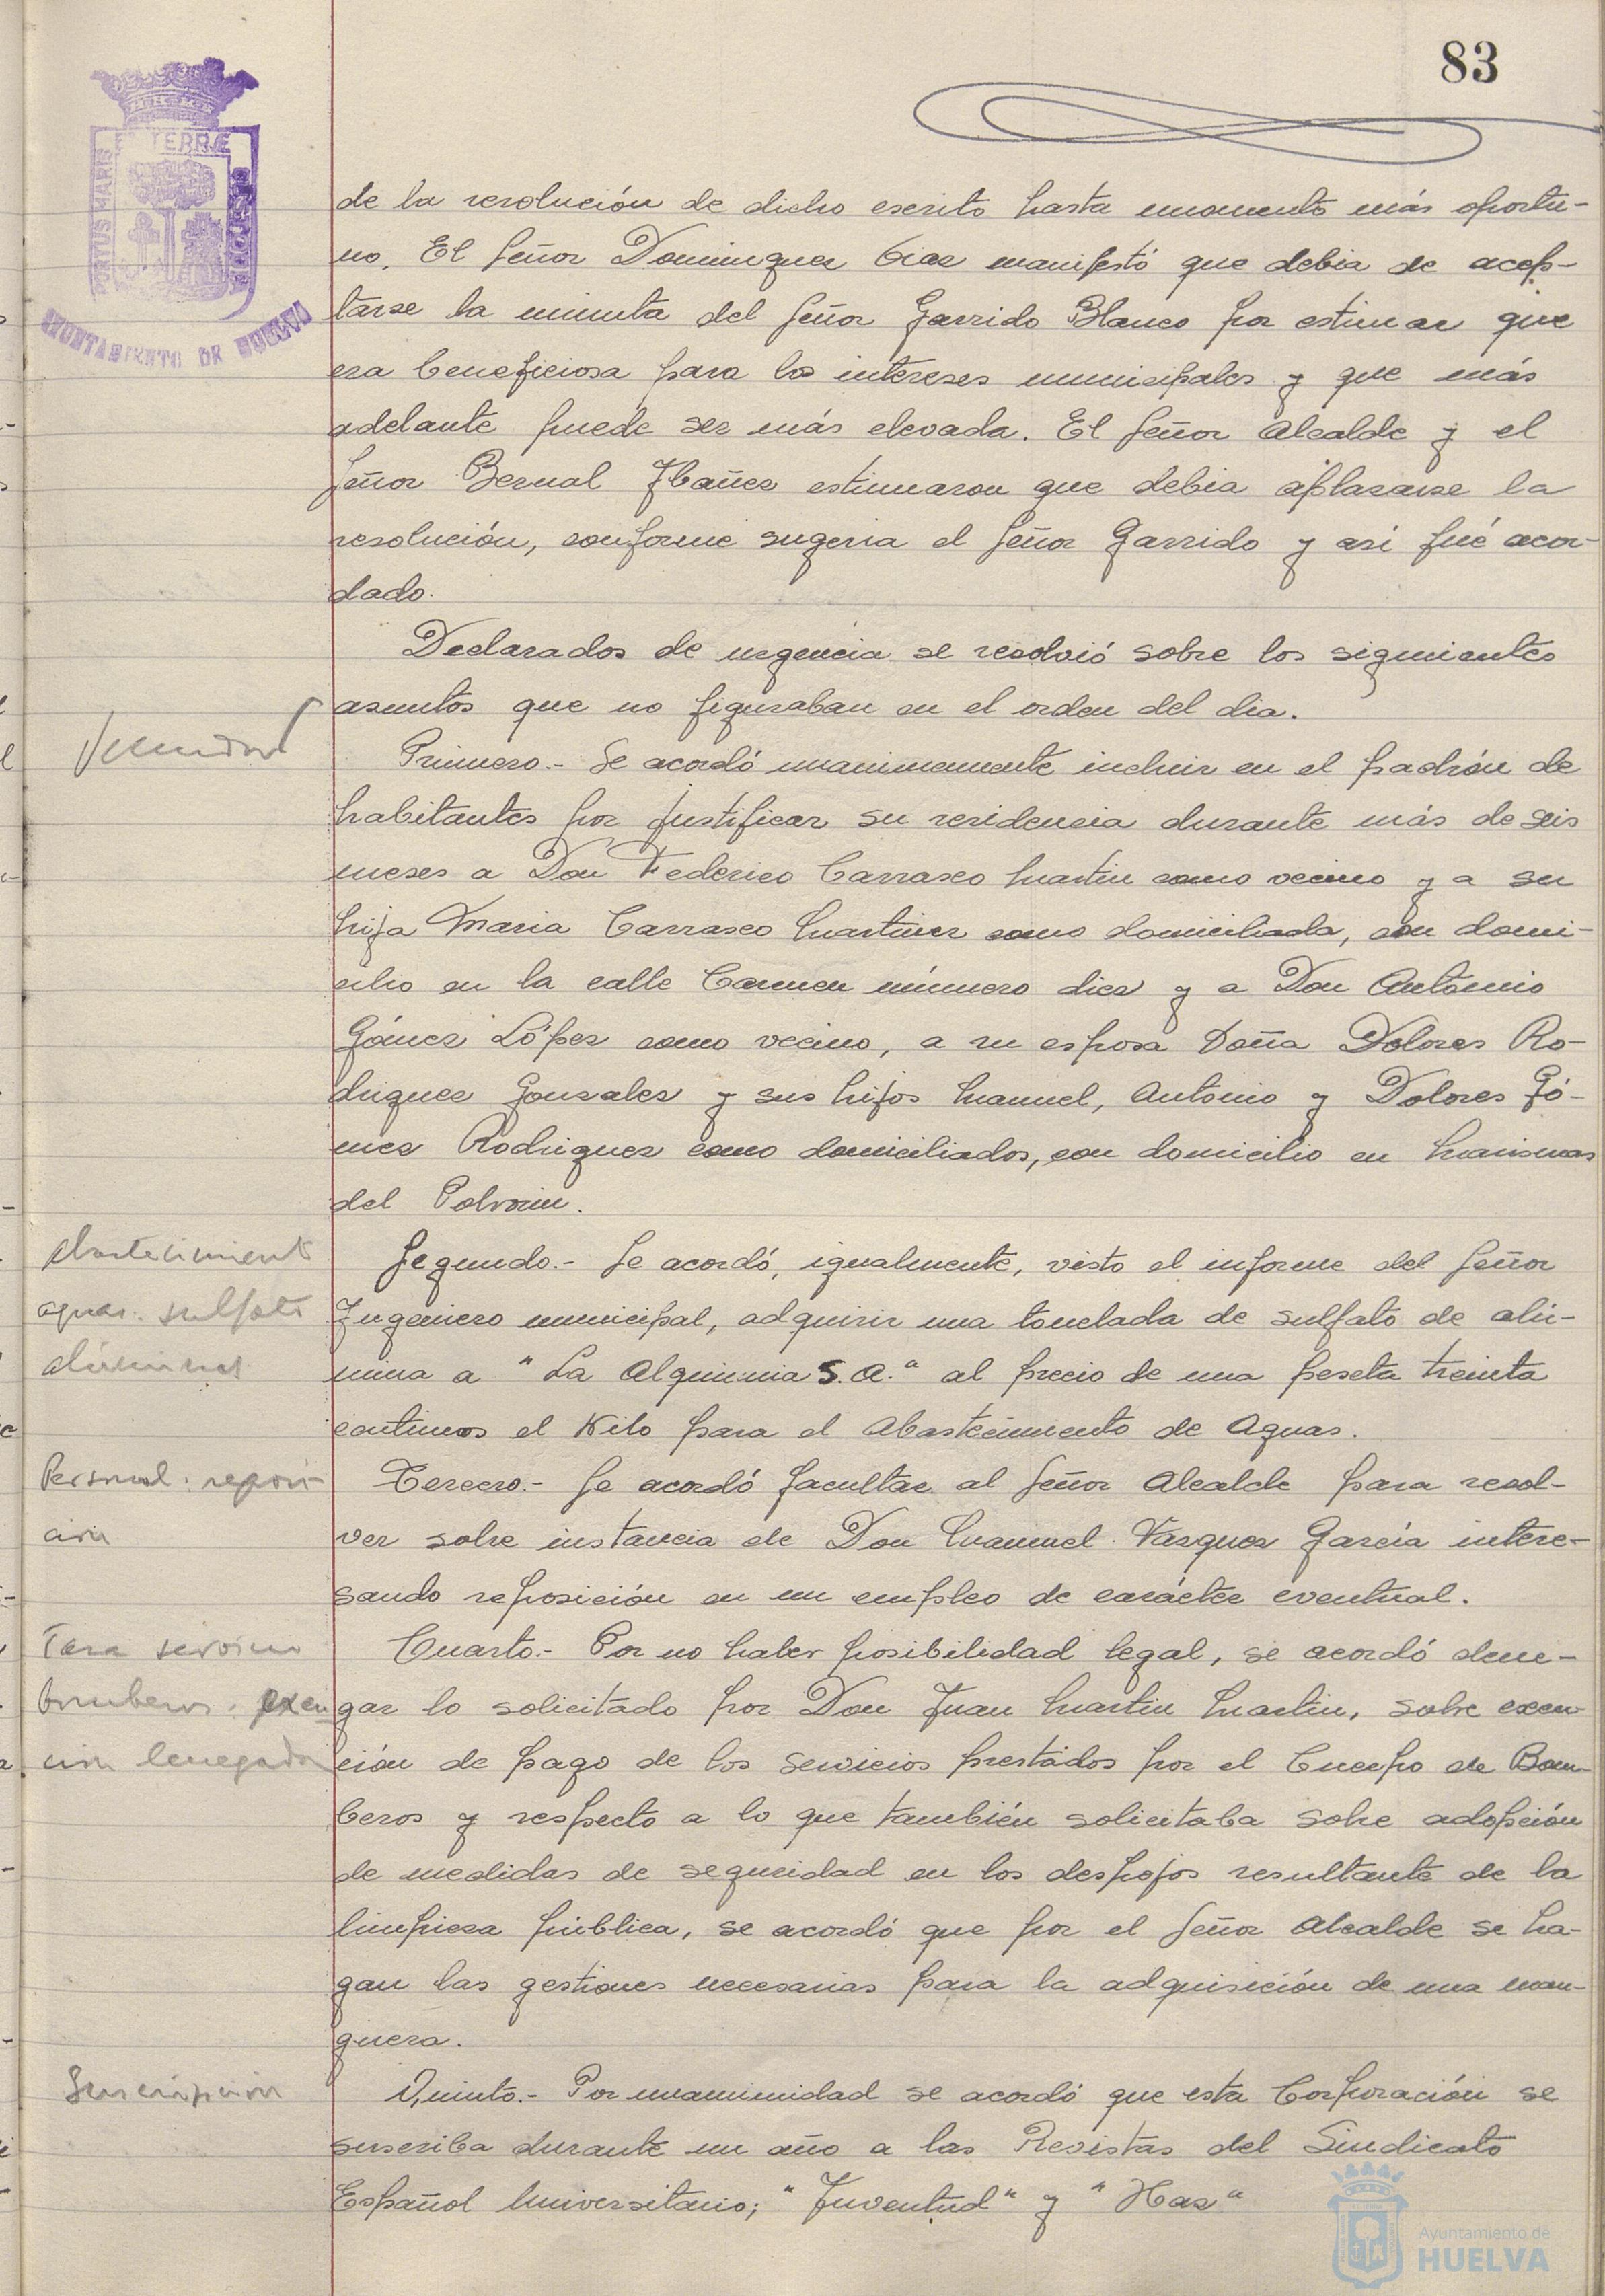 83
PORTUS MARIS
ET TERRÆ
CUSTODIA
AYUNTAMIENTO DE HUELVA
de la resolución de dicho escrito hasta momento más oportu-
no. El Señor Dominguez Gias manifestó que debia de acep-
tarse la minuta del Señor Garrido Blanco por estimar que
era beneficiosa para los intereses municipales y que más
adelante puede ser más elevada. El Señor Alcalde y el
Señor Bernal Ibañez estimaron que debia aplazarse la
resolución, conforme sugeria el Señor Garrido y asi fué acor-
dado.
Declarados de urgencia se resolvió sobre los siguientes
asuntos que no figuraban en el orden del dia.
Vecindad
Primero.- Se acordó unanimemente incluir en el padrón de
habitantes por justificar su residencia durante más de seis
meses a Don Federico Carrasco Martin como vecino y a su
hija Maria Carrasco Martinez como domiciliada, con domi-
cilio en la calle Carmen número diez y a Don Antonio
Gómez López como vecino, a su esposa Doña Dolores Ro-
driguez Gonzalez y sus hijos Manuel, Antonio y Dolores Gó-
mez Rodriguez como domiciliados, con domicilio en Marismas
del Polvorin.
Abastecimiento
aguas. sulfato
alúmina
Segundo.- Se acordó, igualmente, visto el informe del Señor
Ingeniero municipal, adquirir una tonelada de sulfato de alú-
mina a "La Alquimia S.A." al precio de una peseta treinta
centimos el Kilo para el Abastecimiento de Aguas.
Personal. reposi-
ción
Tercero.- Se acordó facultar al Señor Alcalde para resol-
ver sobre instancia de Don Manuel Vázquez García intere-
sando reposición en un empleo de carácter eventual.
Tasa servicio
bomberos. exen
ción denegada
Cuarto.- Por no haber posibilidad legal, se acordó dene-
gar lo solicitado por Don Juan Martin Martin, sobre exen-
ción de pago de los servicios prestados por el Cuerpo de Bom-
beros y respecto a lo que también solicitaba sobre adopción
de medidas de seguridad en los despojos resultante de la
limpieza pública, se acordó que por el Señor Alcalde se ha-
gan las gestiones necesarias para la adquisición de una man-
guera.
Suscripción
Quinto.- Por unanimidad se acordó que esta Corporación se
suscriba durante un año a las Revistas del Sindicato
Español Universitario; "Juventud" y "Haz"
Ayuntamiento de
HUELVA